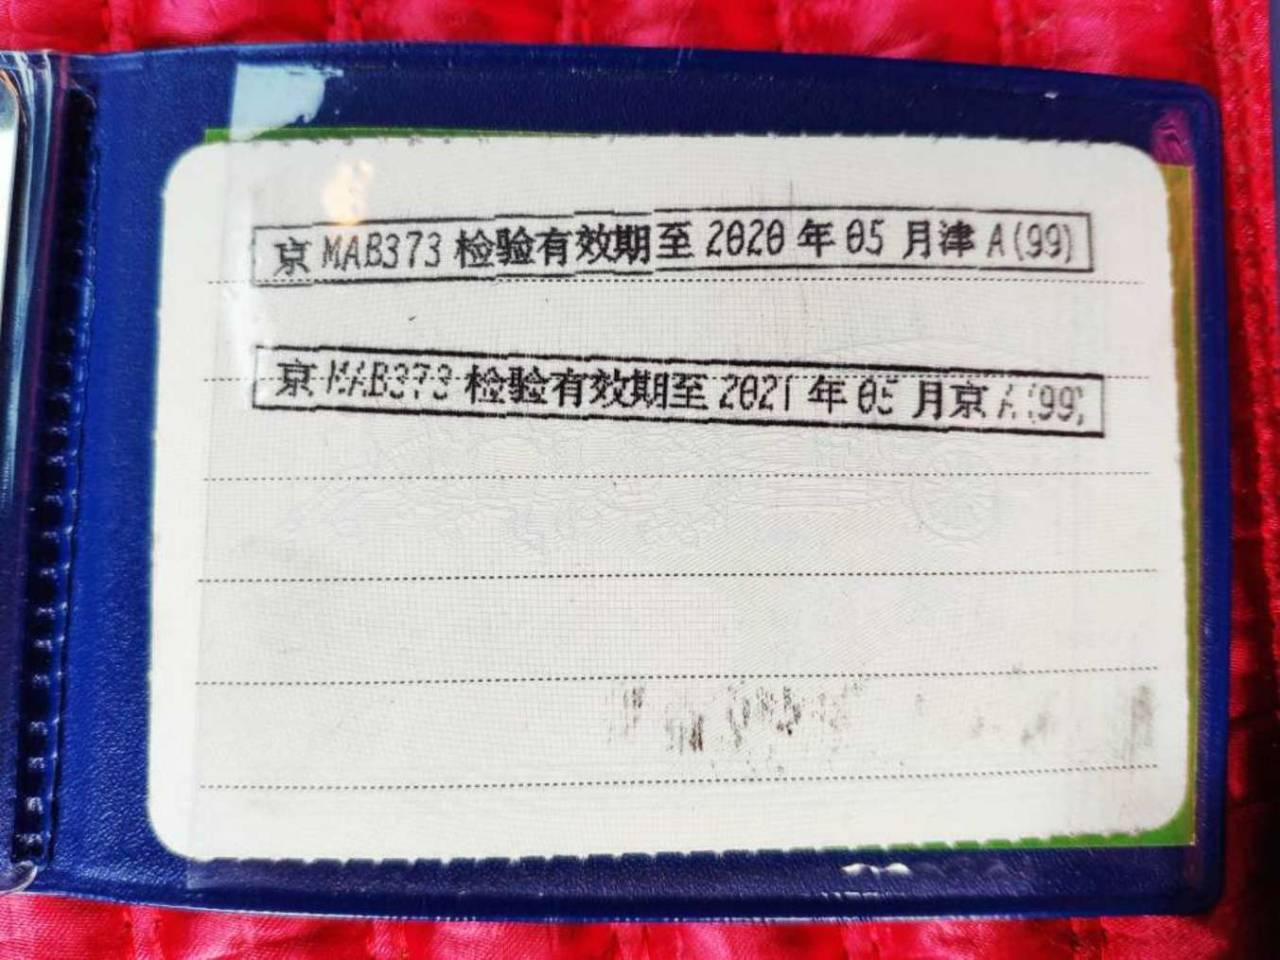 京 MAB373 检验有效期至 2020 年 05 月津 A(99)
京 MAB373 检验有效期至 2021 年 05 月京 A(99)